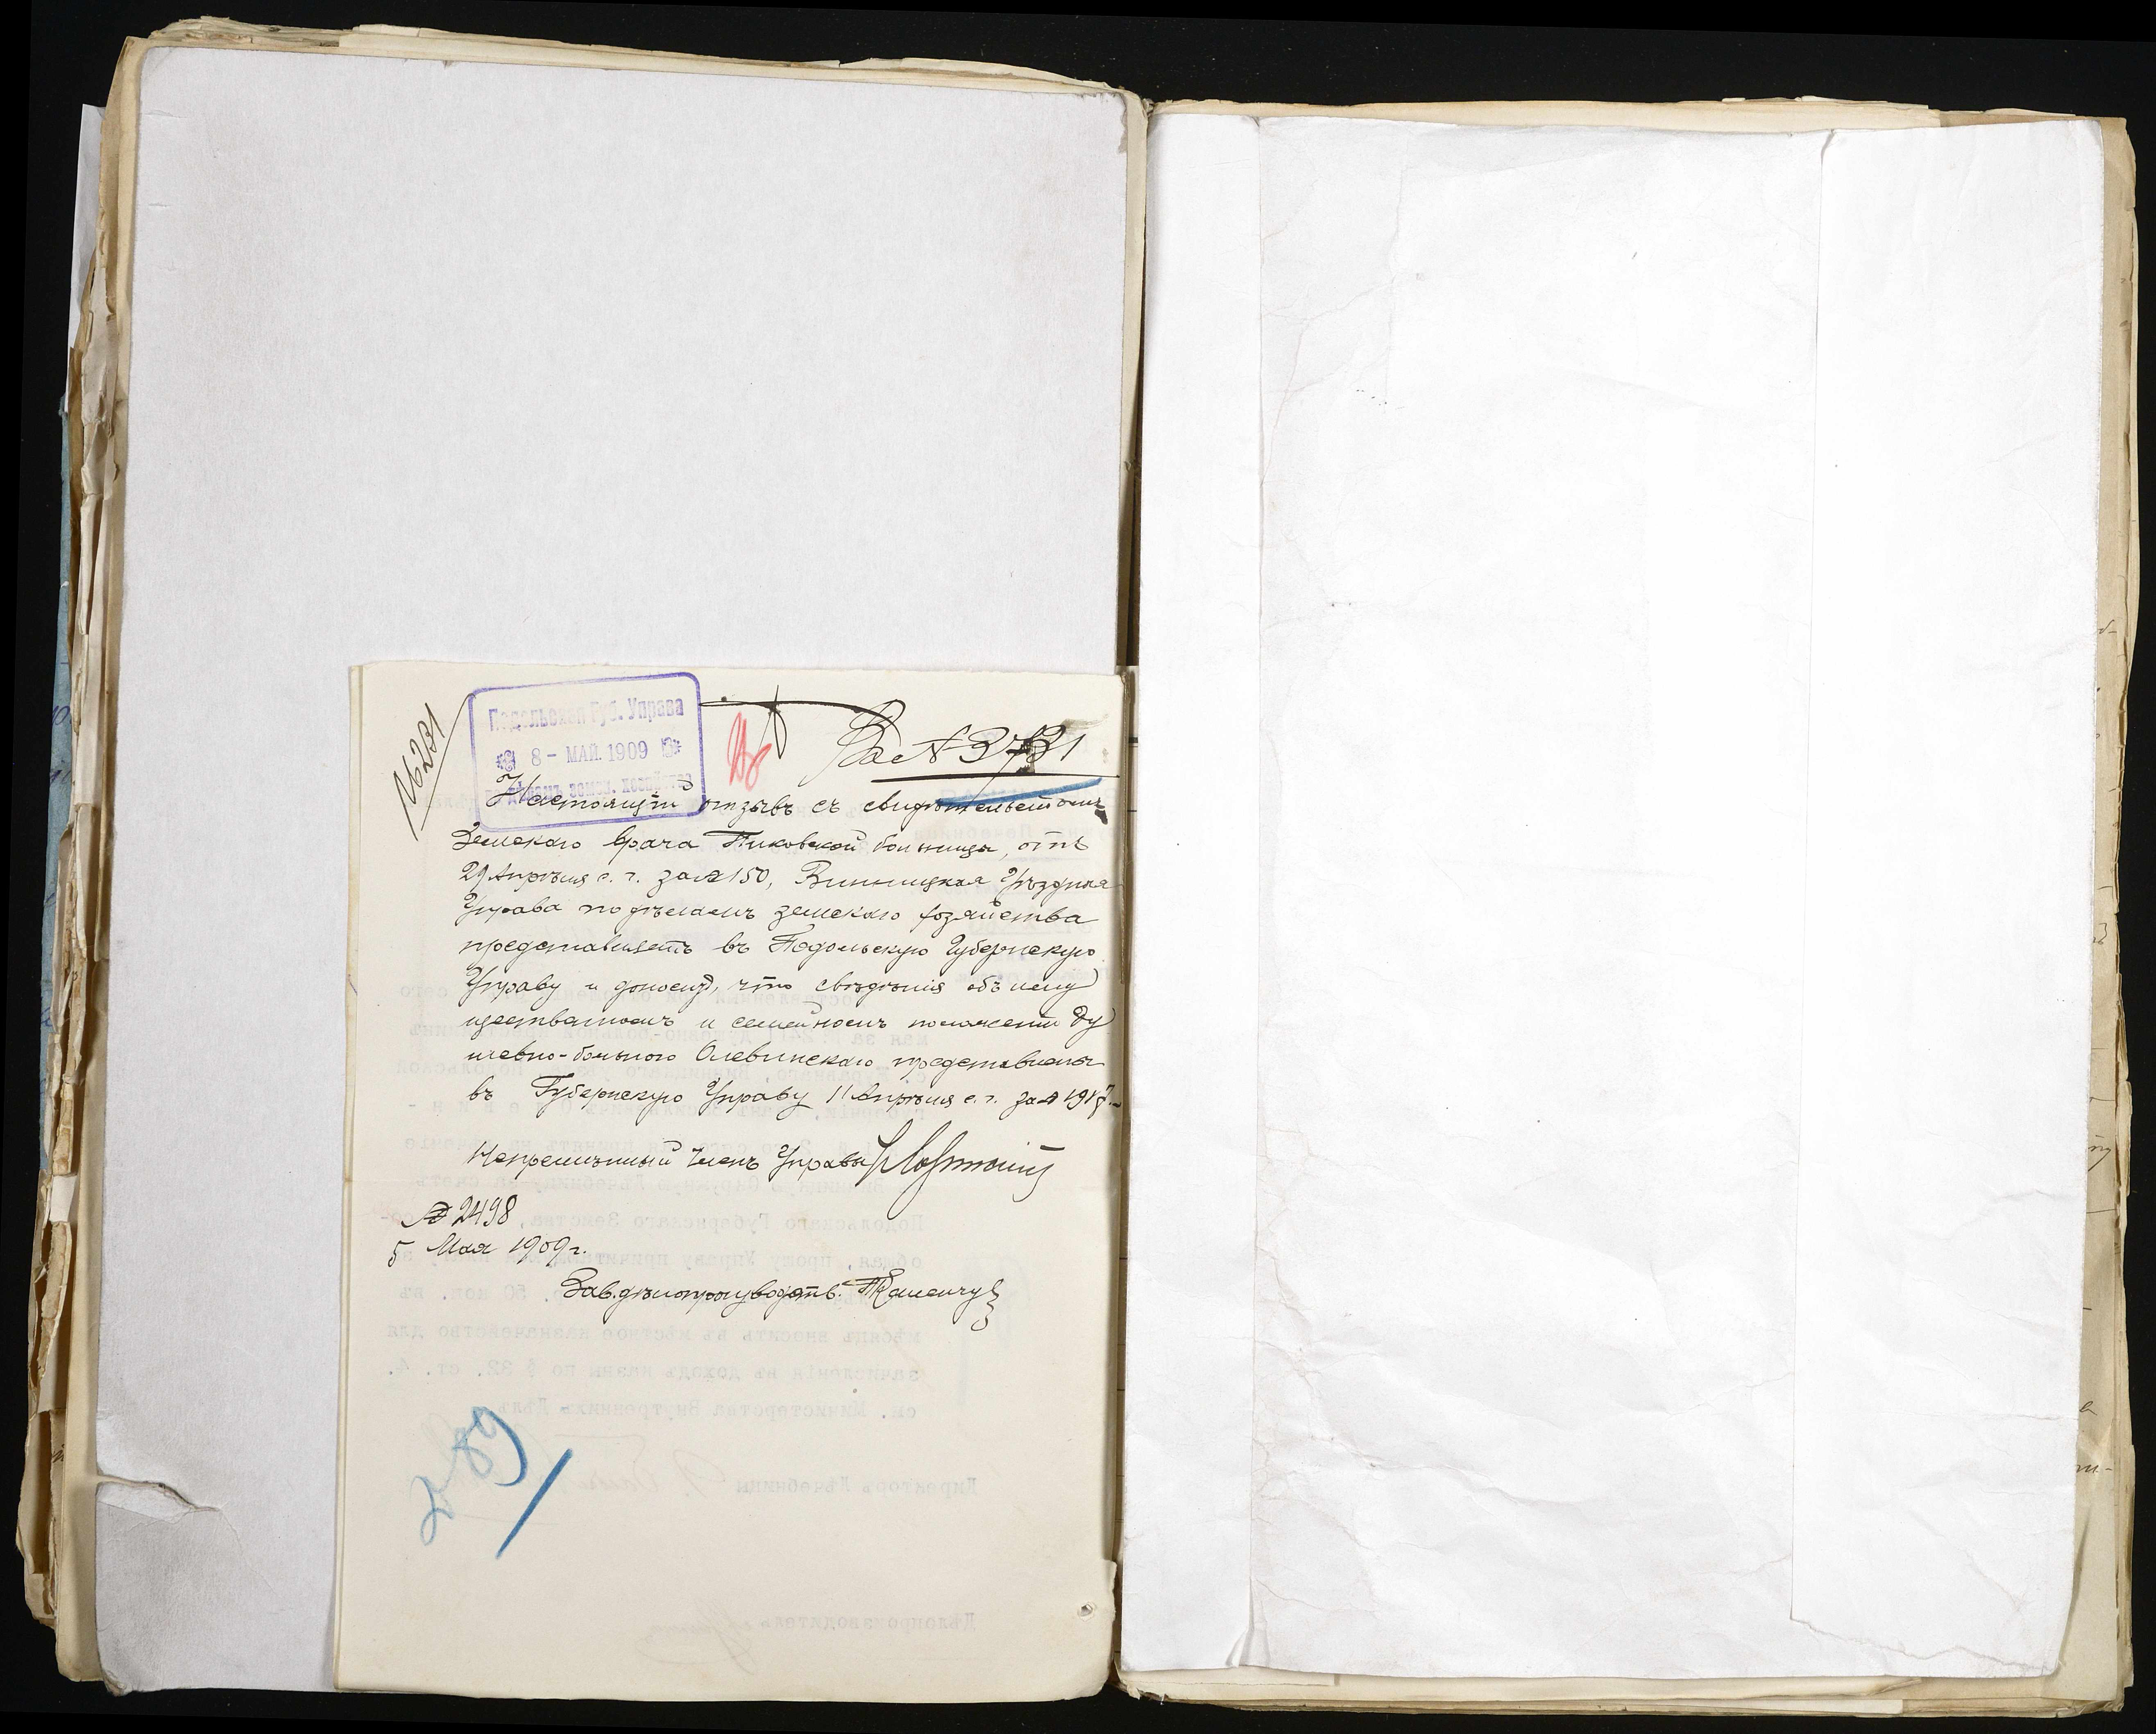 №231
Подольская Губ. Управа
8 - МАЙ. 1909
по дѣламъ земск. хозяйства
№ 3731
Настоящій отзывъ съ свидѣтельствомъ
Земскаго врача Пиковской больницы, отъ
29 Апрѣля с. г. за № 150, Винницкая Уѣздная
Управа по дѣламъ земскаго хозяйства
представляетъ въ Подольскую Губернскую
Управу и доноситъ, что свѣдѣнія объ иму
щественномъ и семейномъ положеніи ду
шевно-больного Олевинскаго представлены
въ Губернскую Управу 11 Апрѣля с. г. за № 1917.
Непремѣнный Членъ Управы
№ 2498
5 Мая 1909 г.
Зав. дѣлопроизводств.
289